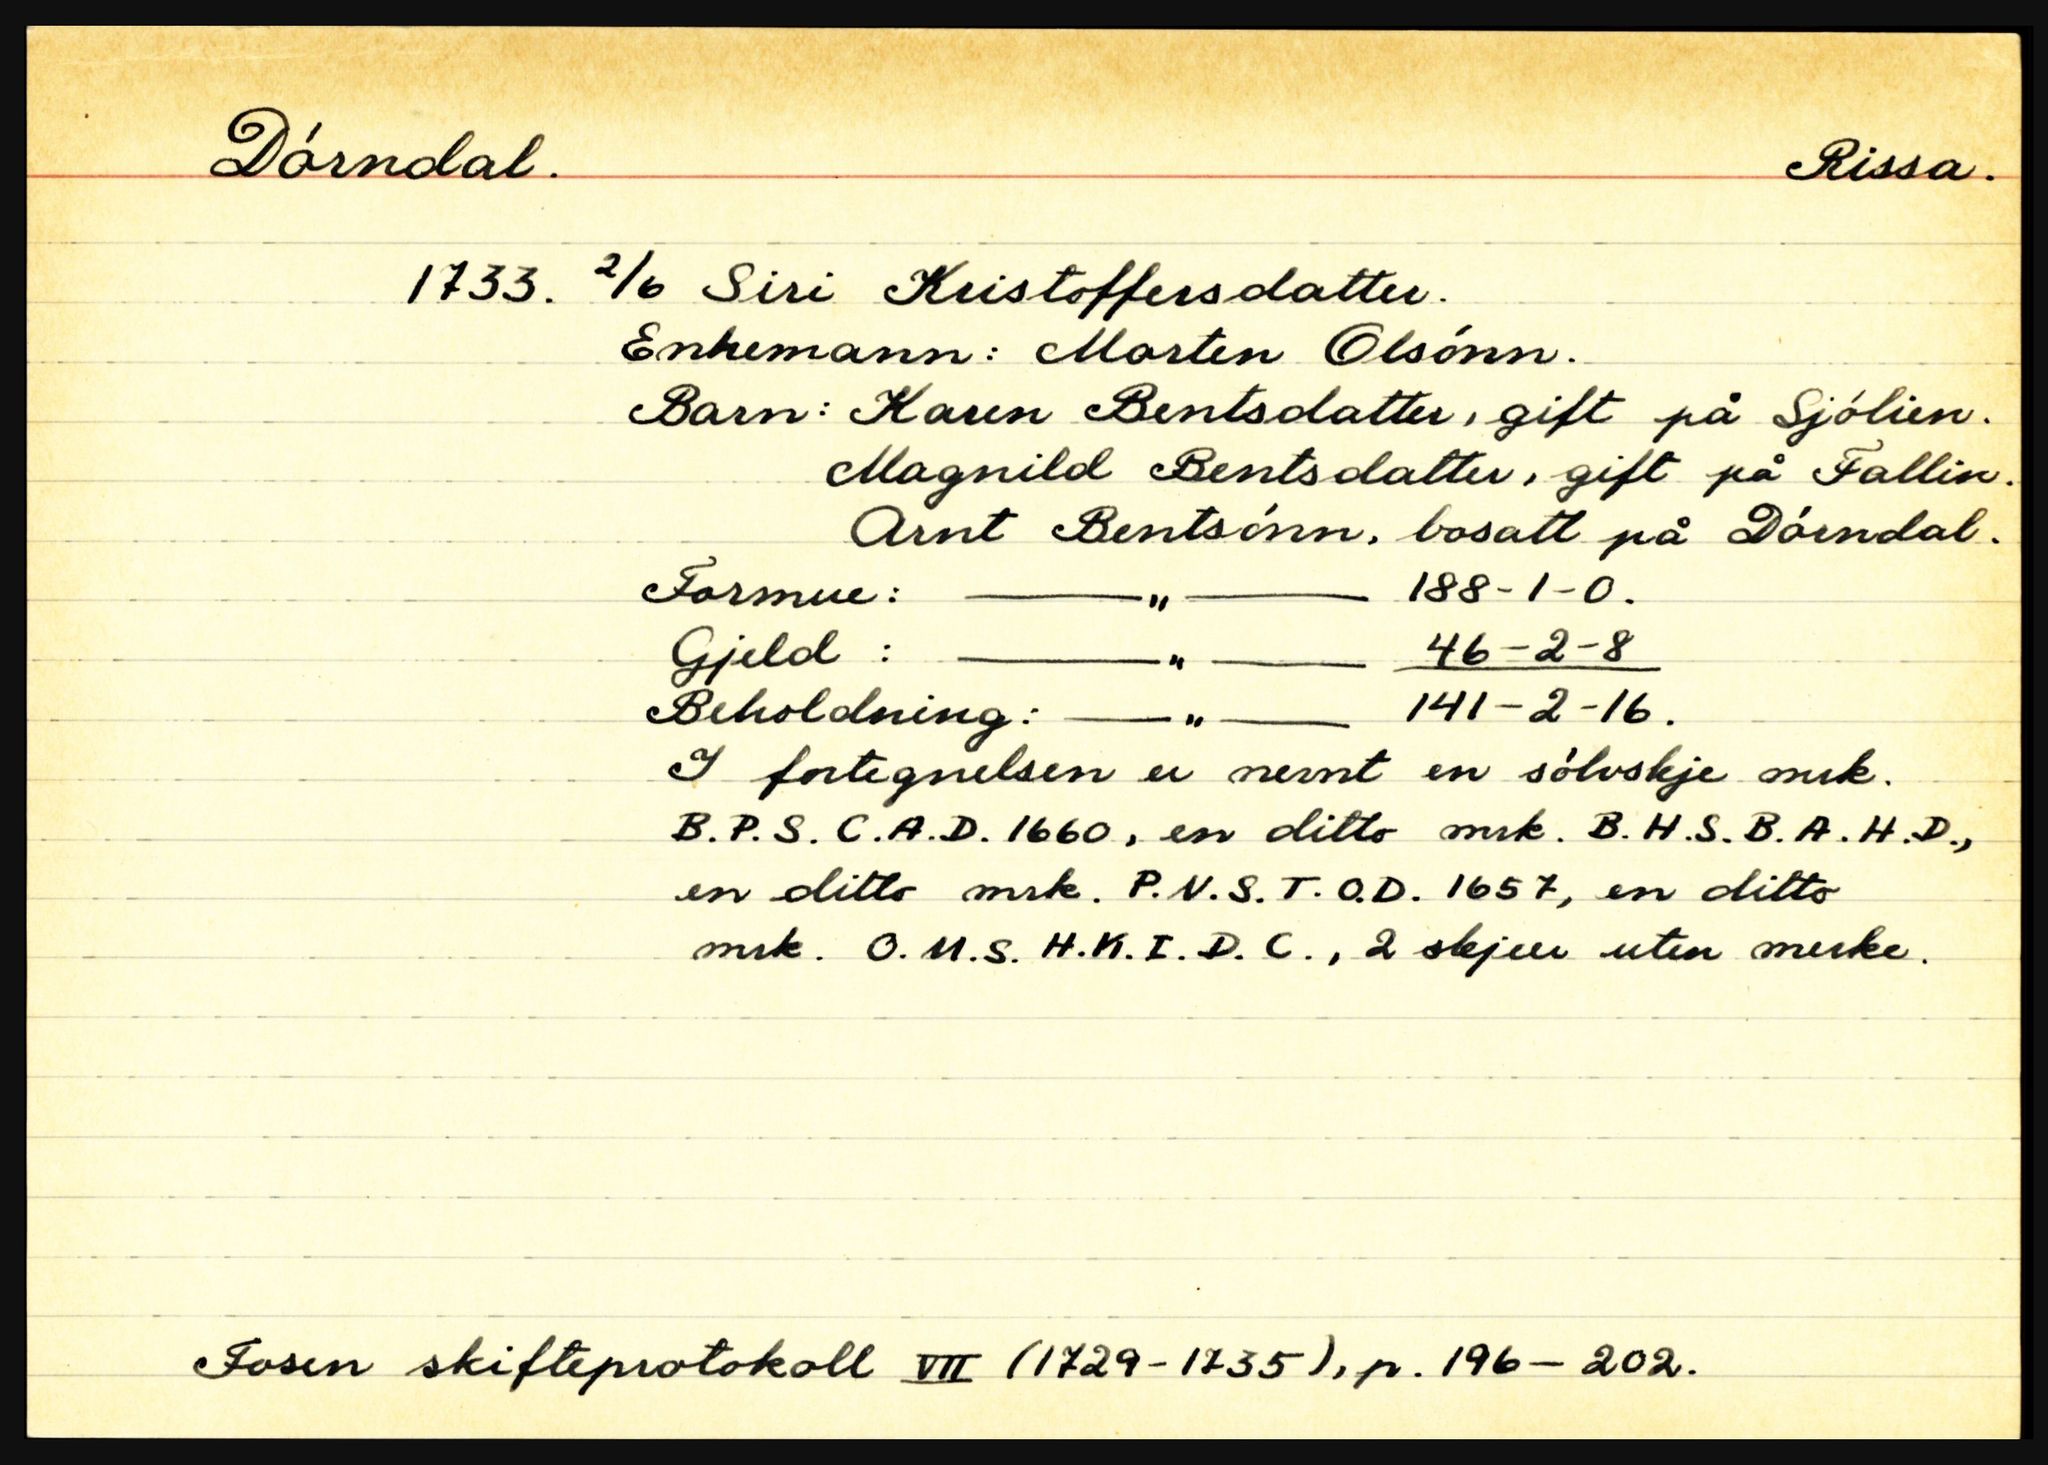 Dórndal. Rissa.
1733. 2/6 Siri Kristoffersdatter.
Enkemann: Morten Olsónn.
Barn: Karen Bentsdatter, gift på Sjólien.
Magnild Bentsdatter, gift på Fallin.
Arnt Bentsónn, bosatt på Dórndal.
Formue: —„— 188-1-0.
Gjeld : —„— 46-2-8
Beholdning: —„— 141-2-16.
I fortegnelsen er nevnt en sólvskje mrk.
B.P.S.C.A.D. 1660, en ditto mrk. B.H.S.B.A.H.D.,
en ditto mrk. P.N.S.T.O.D. 1657, en ditto
mrk. O.M.S.H.K.I.D.C., 2 skjeer uten merke.
Fosen skifteprotokoll VII (1729-1735), p. 196-202.